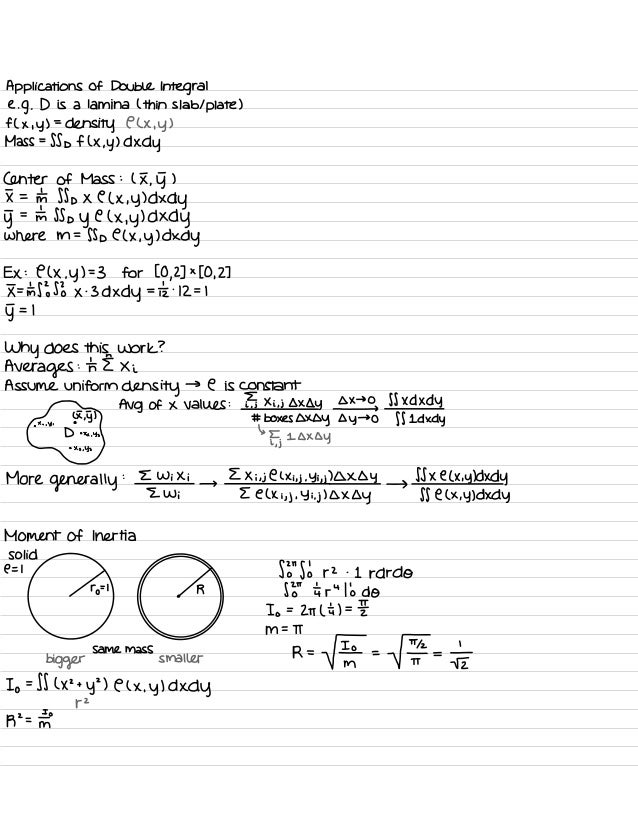 Applications of Double Integral
e.g. D is a lamina (thin slab/plate)
f(x,y) = density ρ(x,y)
Mass = ∬_D f(x,y) dxdy
Center of Mass: (x̄, ȳ)
x̄ = 1/m ∬_D x ρ(x,y)dxdy
ȳ = 1/m ∬_D y ρ(x,y)dxdy
where m = ∬_D ρ(x,y)dxdy
Ex: ρ(x,y)=3 for [0,2]×[0,2]
x̄ = 1/m ∫₀² ∫₀² x·3 dxdy = 1/12 · 12 = 1
ȳ = 1
Why does this work?
Averages: 1/n Σⁿ xᵢ
Assume uniform density → ρ is constant
(x̄, ȳ)
D
•x₁,y₁
•x₂,y₂
•x₃,y₃
Avg of x values: Σ_{i,j} x_{i,j} ΔxΔy / # boxes ΔxΔy Δx→0 / Δy→0 ∬xdxdy / ∬1dxdy
↳ Σ_{i,j} 1ΔxΔy
More generally: Σwᵢxᵢ / Σwᵢ → Σx_{i,j}ρ(x_{i,j}, y_{i,j})ΔxΔy / Σρ(x_{i,j}, y_{i,j})ΔxΔy → ∬xρ(x,y)dxdy / ∬ρ(x,y)dxdy
Moment of Inertia
solid
ρ=1
r₀=1
R
same mass
bigger
smaller
I₀ = ∬(x²+y²) ρ(x,y)dxdy
r²
R² = I₀/m
∫₀^{2π} ∫₀¹ r² · 1 rdrdθ
∫₀^{2π} 1/4 r⁴ |₀¹ dθ
I₀ = 2π(1/4) = π/2
m = π
R = √(I₀/m) = √((π/2)/π) = 1/√2